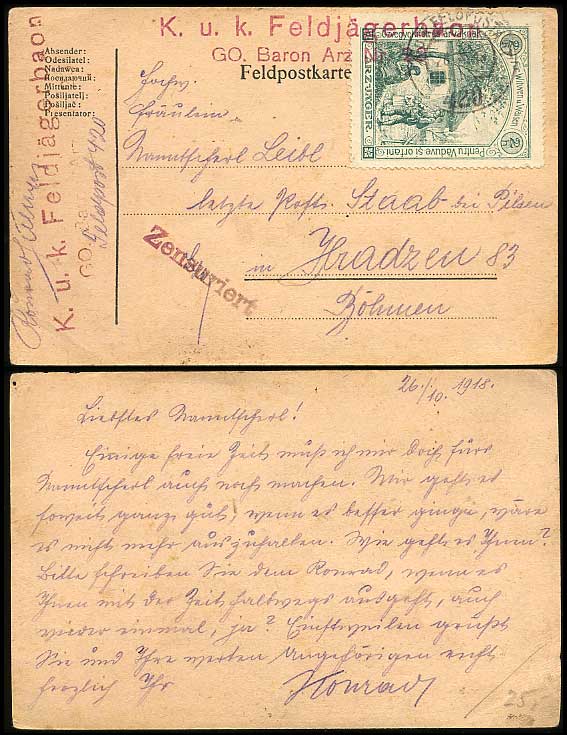 K. u. k. Feldjägerbaon
GO. Baron Arz Nr.
Feldpostkarte
Absender:
Odesílatel:
Nadawca:
Mittente:
Pošiljatelj:
Pošiljač:
Presentator:
K. u. k. Feldjägerbaon
GO. Ba
Feldpost 420
FELDPOST
420
özvegyeknek és árváknak
Witwen u. Waisen
Pentru Văduve Și orfani
2h
2h
Hochw.
Fräulein
Nanntscherl Leibl
letzte Post: Staab bei Pilsen
in Hradzen 83
Böhmen
Zensuriert
26./10. 1918.
Liebstes Nanntscherl!
Einige freie Zeit muß ich mir doch fürs
Nanntscherl auch noch machen. Mir geht es
soweit ganz gut, wenn es besser ginge, wäre
es nicht mehr auszuhalten. Wie geht es Ihnen?
Bitte schreiben Sie dem Konrad, wenn es
Ihnen mit der Zeit halbwegs ausgeht, auch
wieder einmal, ja? Einstweilen grüßt
Sie und Ihre werten Angehörigen recht
herzlich Ihr Konrad
25,-